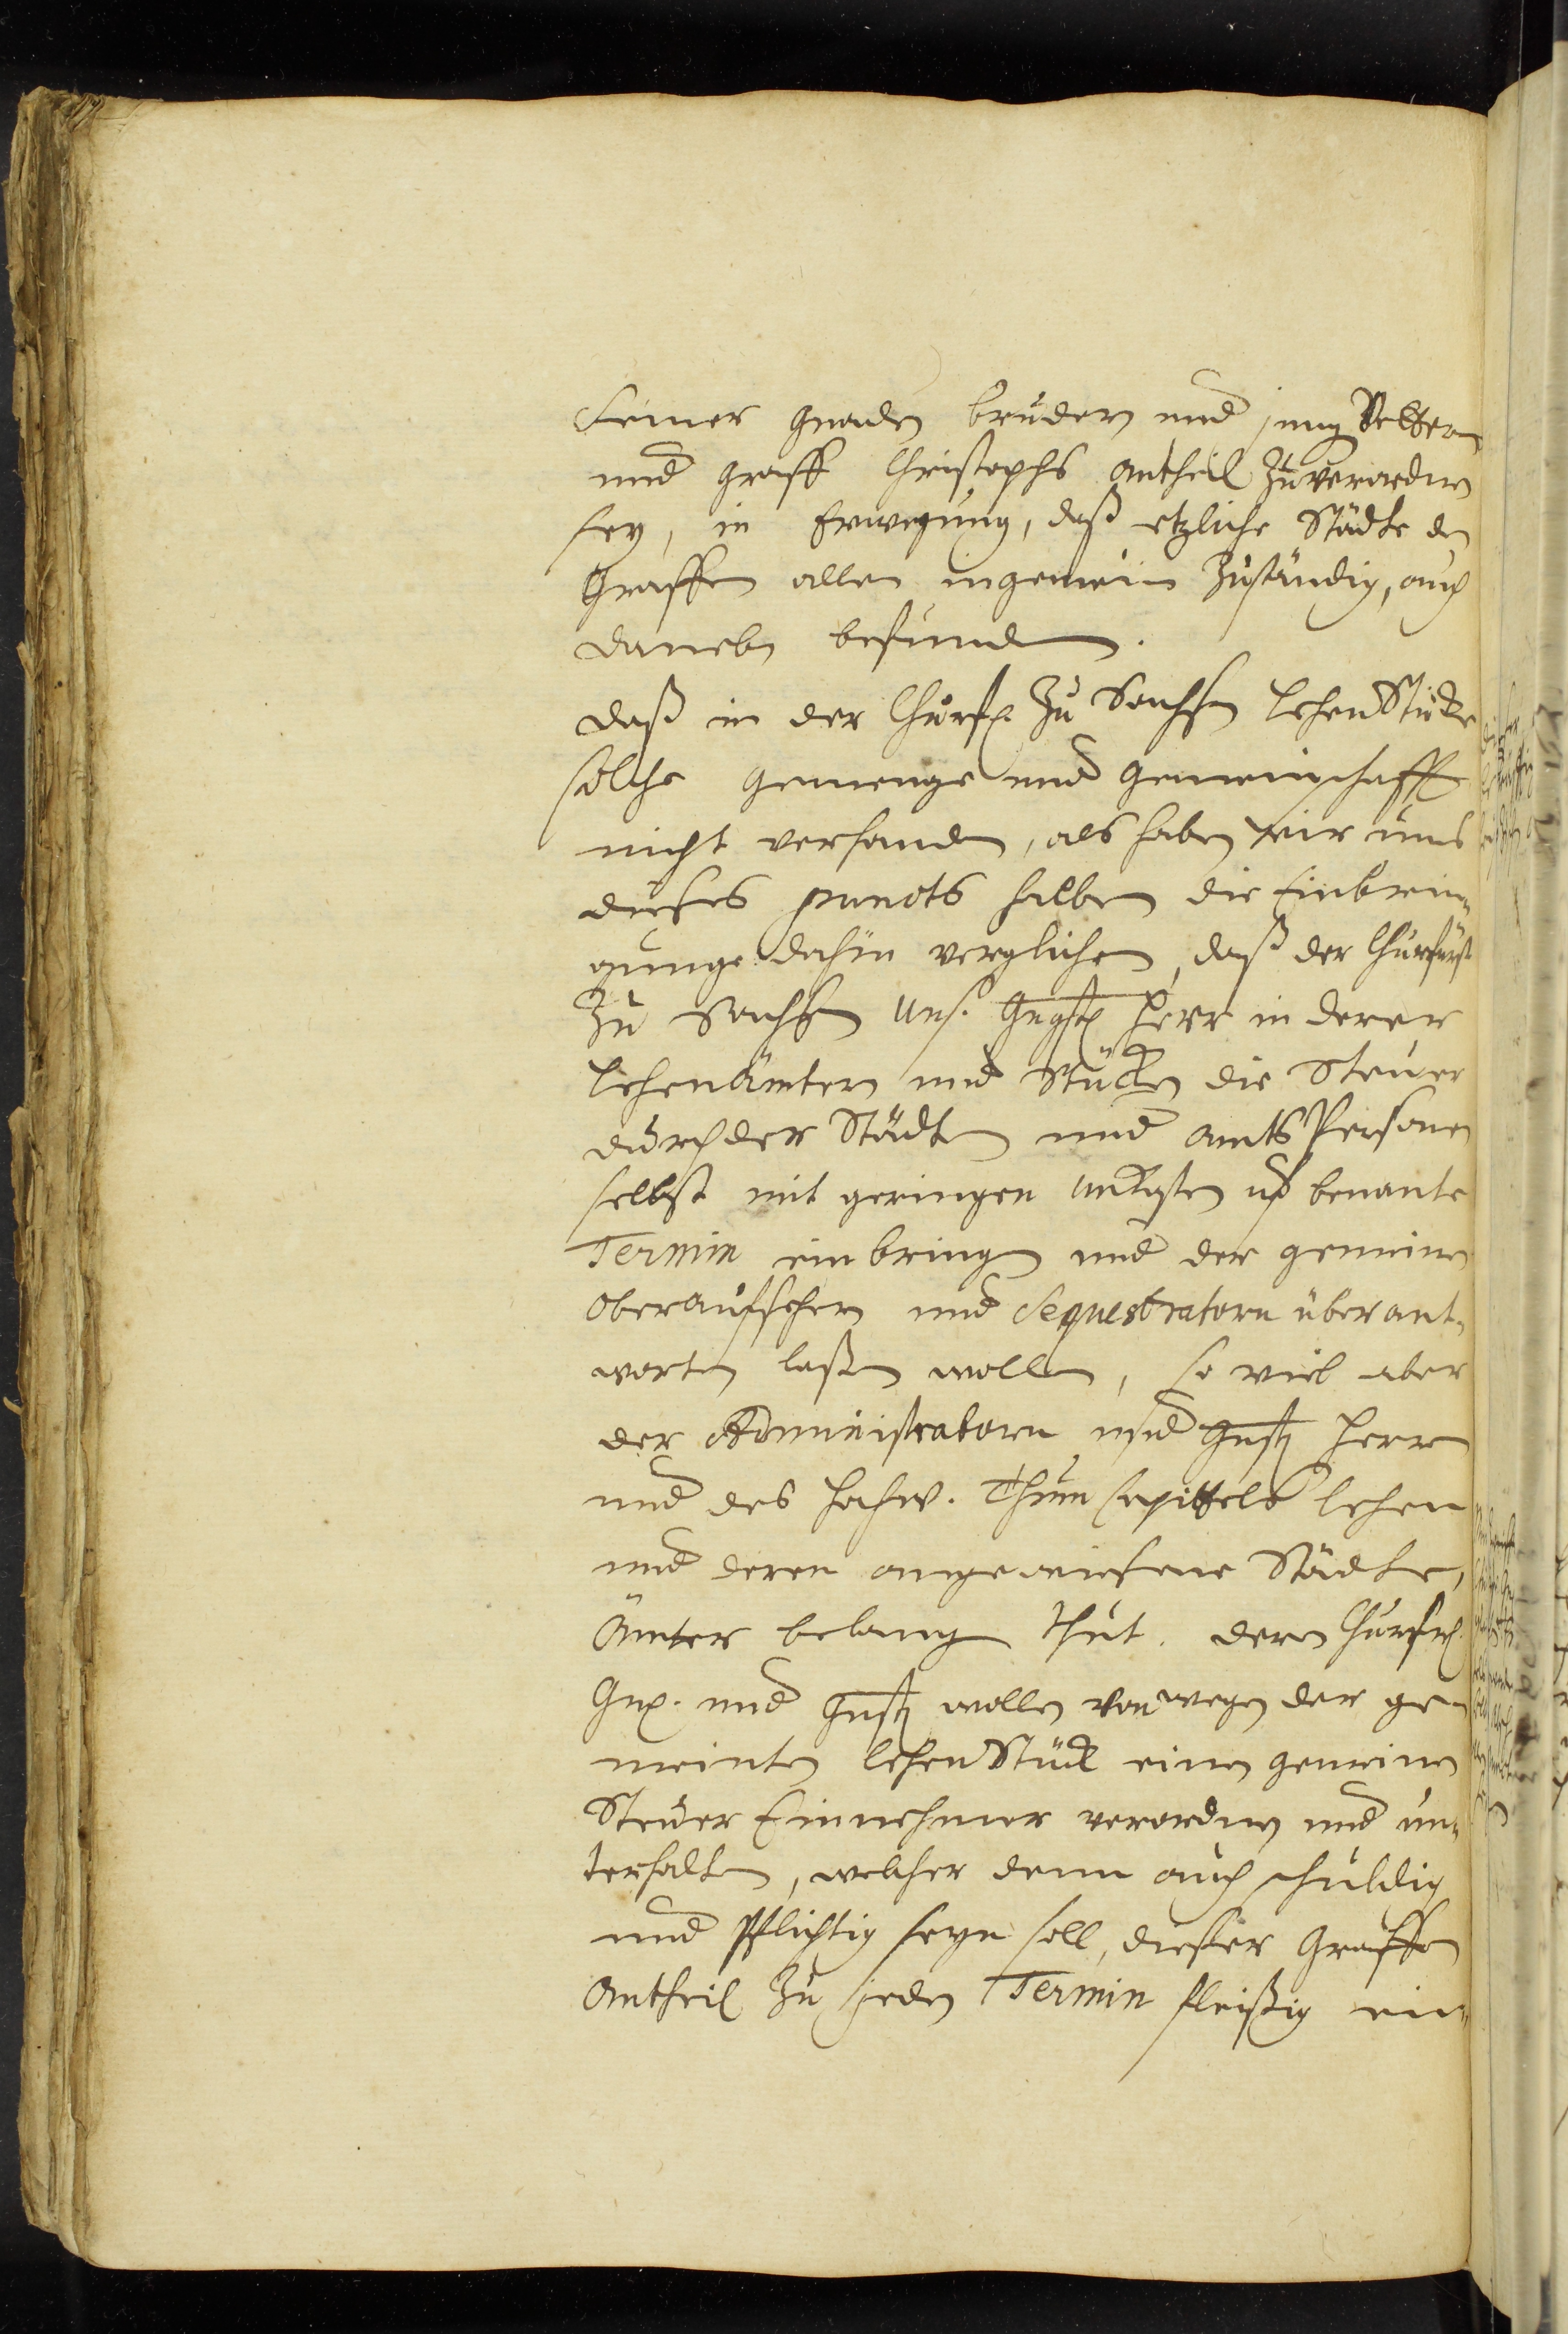 seiner Gnaden brüdern und jung Vettern
und Graff Christophs Antheil Zuverordnen
sey, in Erwegung, daß etzliche Städte den
Graffen allen ingemein Zuständig, auch
daneben befunden.
daß in der Churf. Zu Sachssen LehenStücke
solche gemenge und gemeinschafft
nicht verhanden, als haben wir uns
dieses puncts halben die Einbrin„
gunge dahin verglichen, daß der Churfürst
Zu Sachssen uns. Gngst Herr in deren
Lehenämtern und Stücken die Steuer
durch der Städte und Amts Personen
selbst mit geringen Unkosten uf benante
Termin einbringen und der gemeinen
Oberaufsehern und Sequestratorn überant„
worten laßen wollen, so viel aber
der Administratorn und Gnst Herrn
und des Hochw. Thum Capittels Lehen
und deren angewiesene Städte,
Ämter belangen thut. deren Churf.
Gn. und Gnst wollen von wegen der ge„
meinten LehenStück einen gemeinen
Steuer Einnehmer verordnen und un„
terhalten, welcher denn auch schuldig
und Pflichtig seyn soll, dieser Graffen
Antheil Zu jeden Termin fleißig ein„